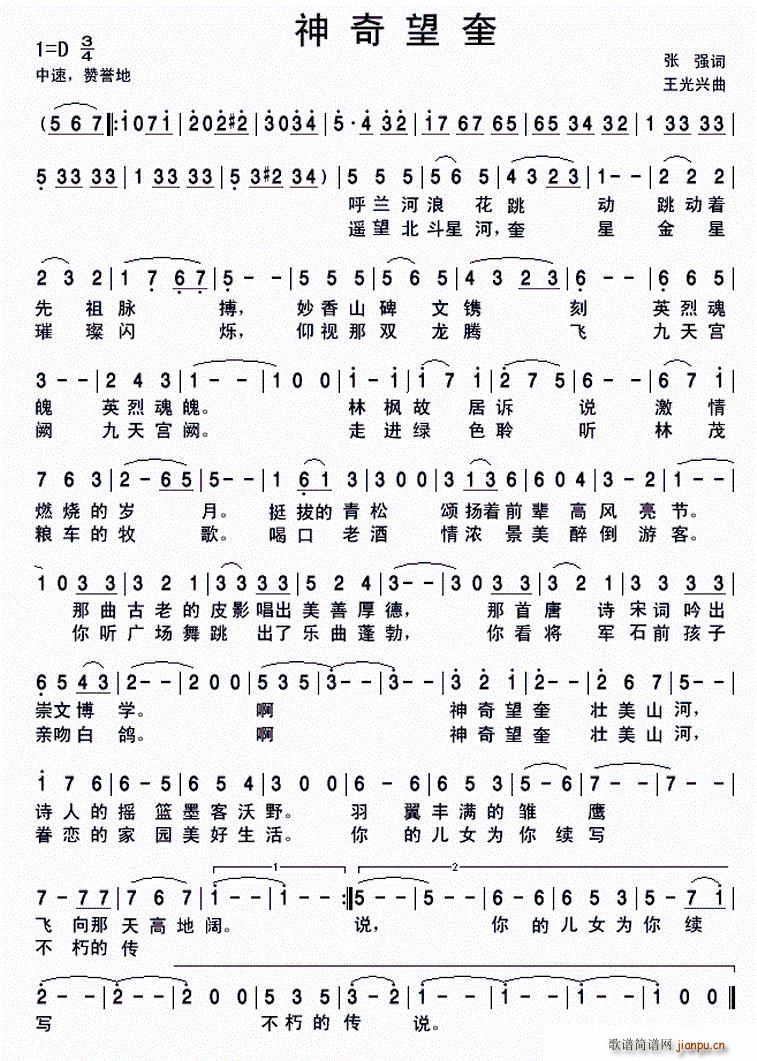 神奇望奎
1=D 3/4
张 强词
中速，赞誉地
王光兴曲
(5 6 7‖:1071|202#2|3034|5·4 32|17 67 65|65 34 32|1 33 33|
5 33 33|1 33 33|5 3#2 34)|5 5 5|5 6 5|43 23|1--|2 2 2|
呼兰河浪 花跳 动 跳动着
遥望北斗星河,奎 星 金星
2 3 2|1 7 67|5--|5 5 5|5 6 5|43 23|6--|6 6 6|
先祖脉 搏，妙香山碑 文镌 刻 英烈魂
璀璨闪 烁，仰视那双 龙腾 飞 九天宫
3--|2 4 3|1--|1 0 0|1-1|1 7 1|2 7 5|6--|6 7 1|
魄 英烈魂魄。 林枫故 居诉 说 激情
阙 九天宫阙。 走进绿 色聆 听 林茂
7 6 3|2-65|5--|1 61 3|3 0 0|3 13 6|6 0 4|3-2|1--|
燃烧的岁 月。 挺拔的青松 颂扬着前辈高风亮节。
粮车的牧 歌。 喝口 老酒 情浓 景美醉倒游客。
1 0 33|3 3 3|33 33|5 2 4|3--|3 0 33|3 2 1|33 33|
那曲古老的皮影唱出美善厚德， 那首唐 诗宋词吟出
你听广场舞跳 出了乐曲蓬勃， 你看将 军石前孩子
6 5 43|2--|2 0 0|5 3 5|3--|3--|3 2 1|2--|2 6 7|5--|
崇文博 学。 啊 神奇望奎 壮美山河，
亲吻白 鸽。 啊 神奇望奎 壮美山河，
1 7 6|6-5|6 5 4|3 0 0|6-6|6 5 3|5-6|7--|7--|
诗人的摇 篮墨客沃野。 羽 翼丰满的雏 鹰
眷恋的家 园美好生活。 你 的儿女为你续写
1
2
7-77|7 6 7|1--|1--:‖5--|5--|6-6|6 5 3|5-71|
飞 向那天高地阔。 说， 你 的儿女为你续
不朽的传
2--|2--|2 0 0|5 3 5|3-2|1--|1--|1 0 0‖
写 不朽的传 说。
歌谱简谱网 jianpu.cn